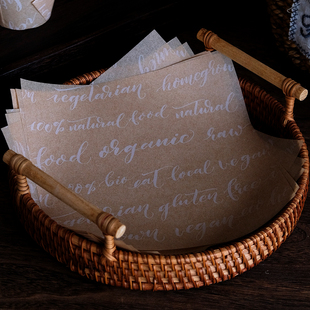 vegetarian homegrown
100% natural food natural
food organic raw
100% bio eat local vegan
vegetarian gluten free
own vegan